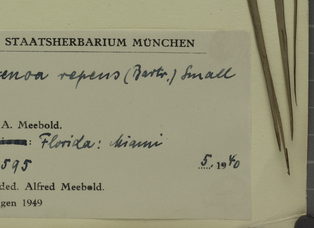 STAATSHERBARIUM MÜNCHEN
enoa repens (Bartr.) Small
A. Meebold.
: Florida: Miami
595 5. 1940
ded. Alfred Meebold.
gen 1949